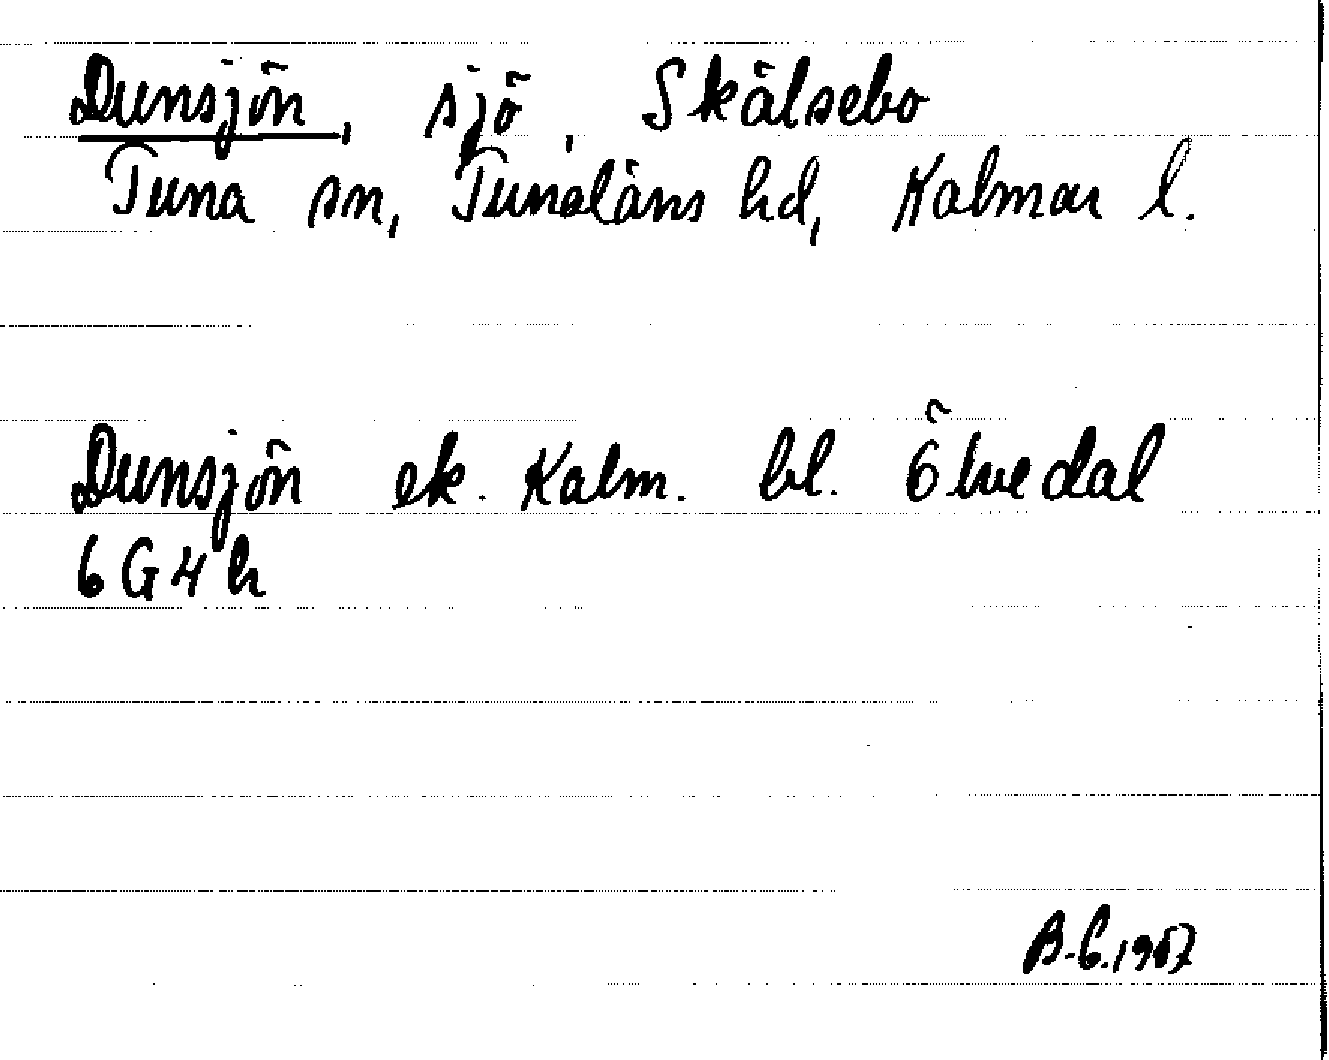 Dunsjön, sjö, Skälsebo
Tuna sn, Tunaläns hd, Kalmar l.
Dunsjön ek. Kalm. bl. Ölvedal
6G4h
B.C. 1957